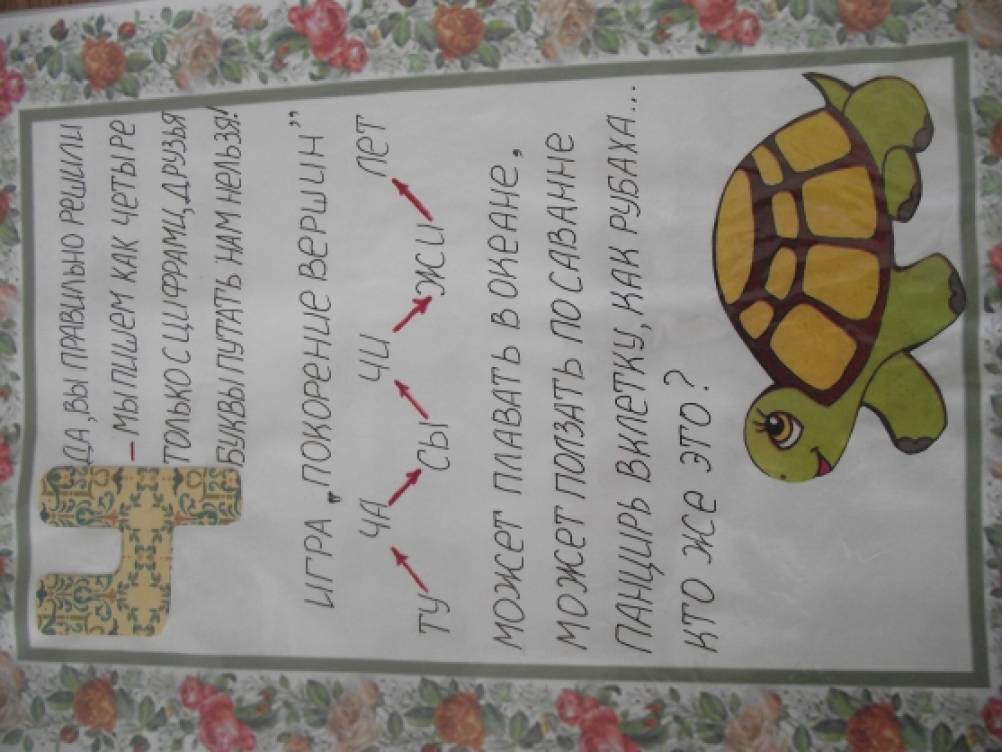 Ч
ДА, ВЫ ПРАВИЛЬНО РЕШИЛИ
– МЫ ПИШЕМ КАК ЧЕТЫРЕ
ТОЛЬКО С ЦИФРАМИ, ДРУЗЬЯ
БУКВЫ ПУТАТЬ НАМ НЕЛЬЗЯ!
ИГРА „ПОКОРЕНИЕ ВЕРШИН”
ТУ ЧА СЫ ЧИ ЖИ ЛЕТ
МОЖЕТ ПЛАВАТЬ В ОКЕАНЕ,
МОЖЕТ ПОЛЗАТЬ ПО САВАННЕ
ПАНЦИРЬ В КЛЕТКУ, КАК РУБАХА...
КТО ЖЕ ЭТО?